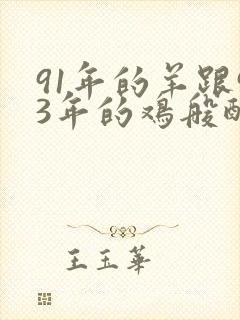 91年的羊跟9
3年的鸡般配
王玉华